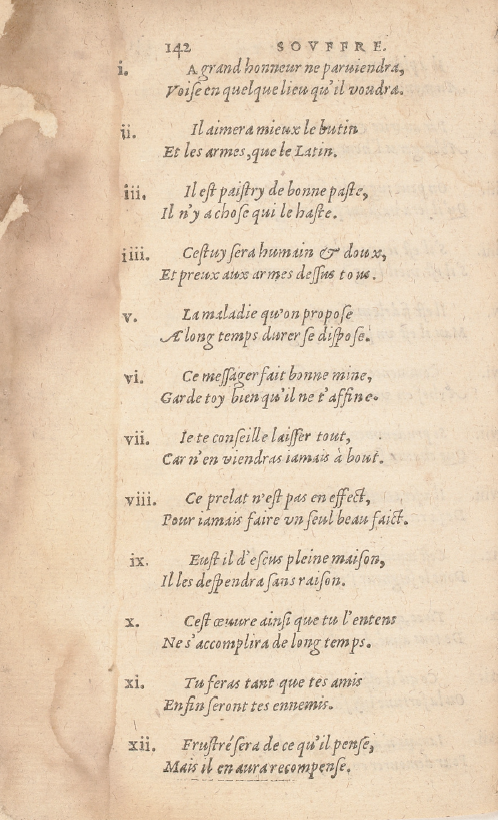 142 SOVFFRE.
i. A grand honneur ne paruiendra,
Voise en quelque lieu qu'il voudra.
ii. Il aimera mieux le butin
Et les armes, que le Latin.
iii. Il est paistry de bonne paste,
Il n'y a chose qui le haste.
iiii. Cestuy sera humain & doux,
Et preux aux armes dessus tous.
v. La maladie qu'on propose
A long temps durer se dispose.
vi. Ce messager fait bonne mine,
Garde toy bien qu'il ne t'affine.
vii. Ie te conseille laisser tout,
Car n'en viendras iamais à bout.
viii. Ce prelat n'est pas en effect,
Pour iamais faire vn seul beau faict.
ix. Eust il d'escus pleine maison,
Il les despendra sans raison.
x. Cest œuure ainsi que tu l'entens
Ne s'accomplira de long temps.
xi. Tu feras tant que tes amis
Enfin seront tes ennemis.
xii. Frustré sera de ce qu'il pense,
Mais il en aura recompense.